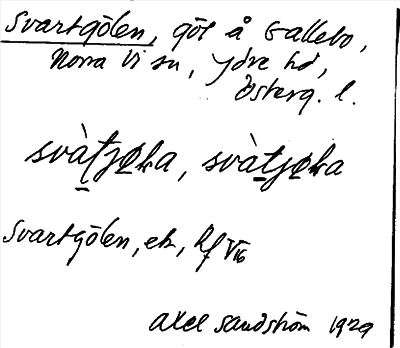 Svartgölen, göl å Gallebo,
Norra Vi sn, Ydre hd,
Österg. l.
svàt̠jø̠ka, svàt̠jø̠ka
Svartgölen, ek, hf VI6
Axel Sandström 1929